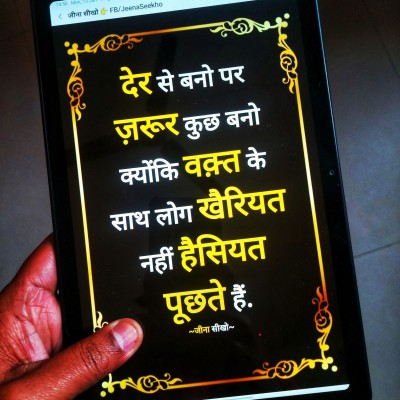 जीना सीखो 👉 FB/JeenaSeekho
देर से बनो पर
ज़रूर कुछ बनो
क्योंकि वक़्त के
साथ लोग खैरियत
नहीं हैसियत
पूछते हैं.
~जीना सीखो~